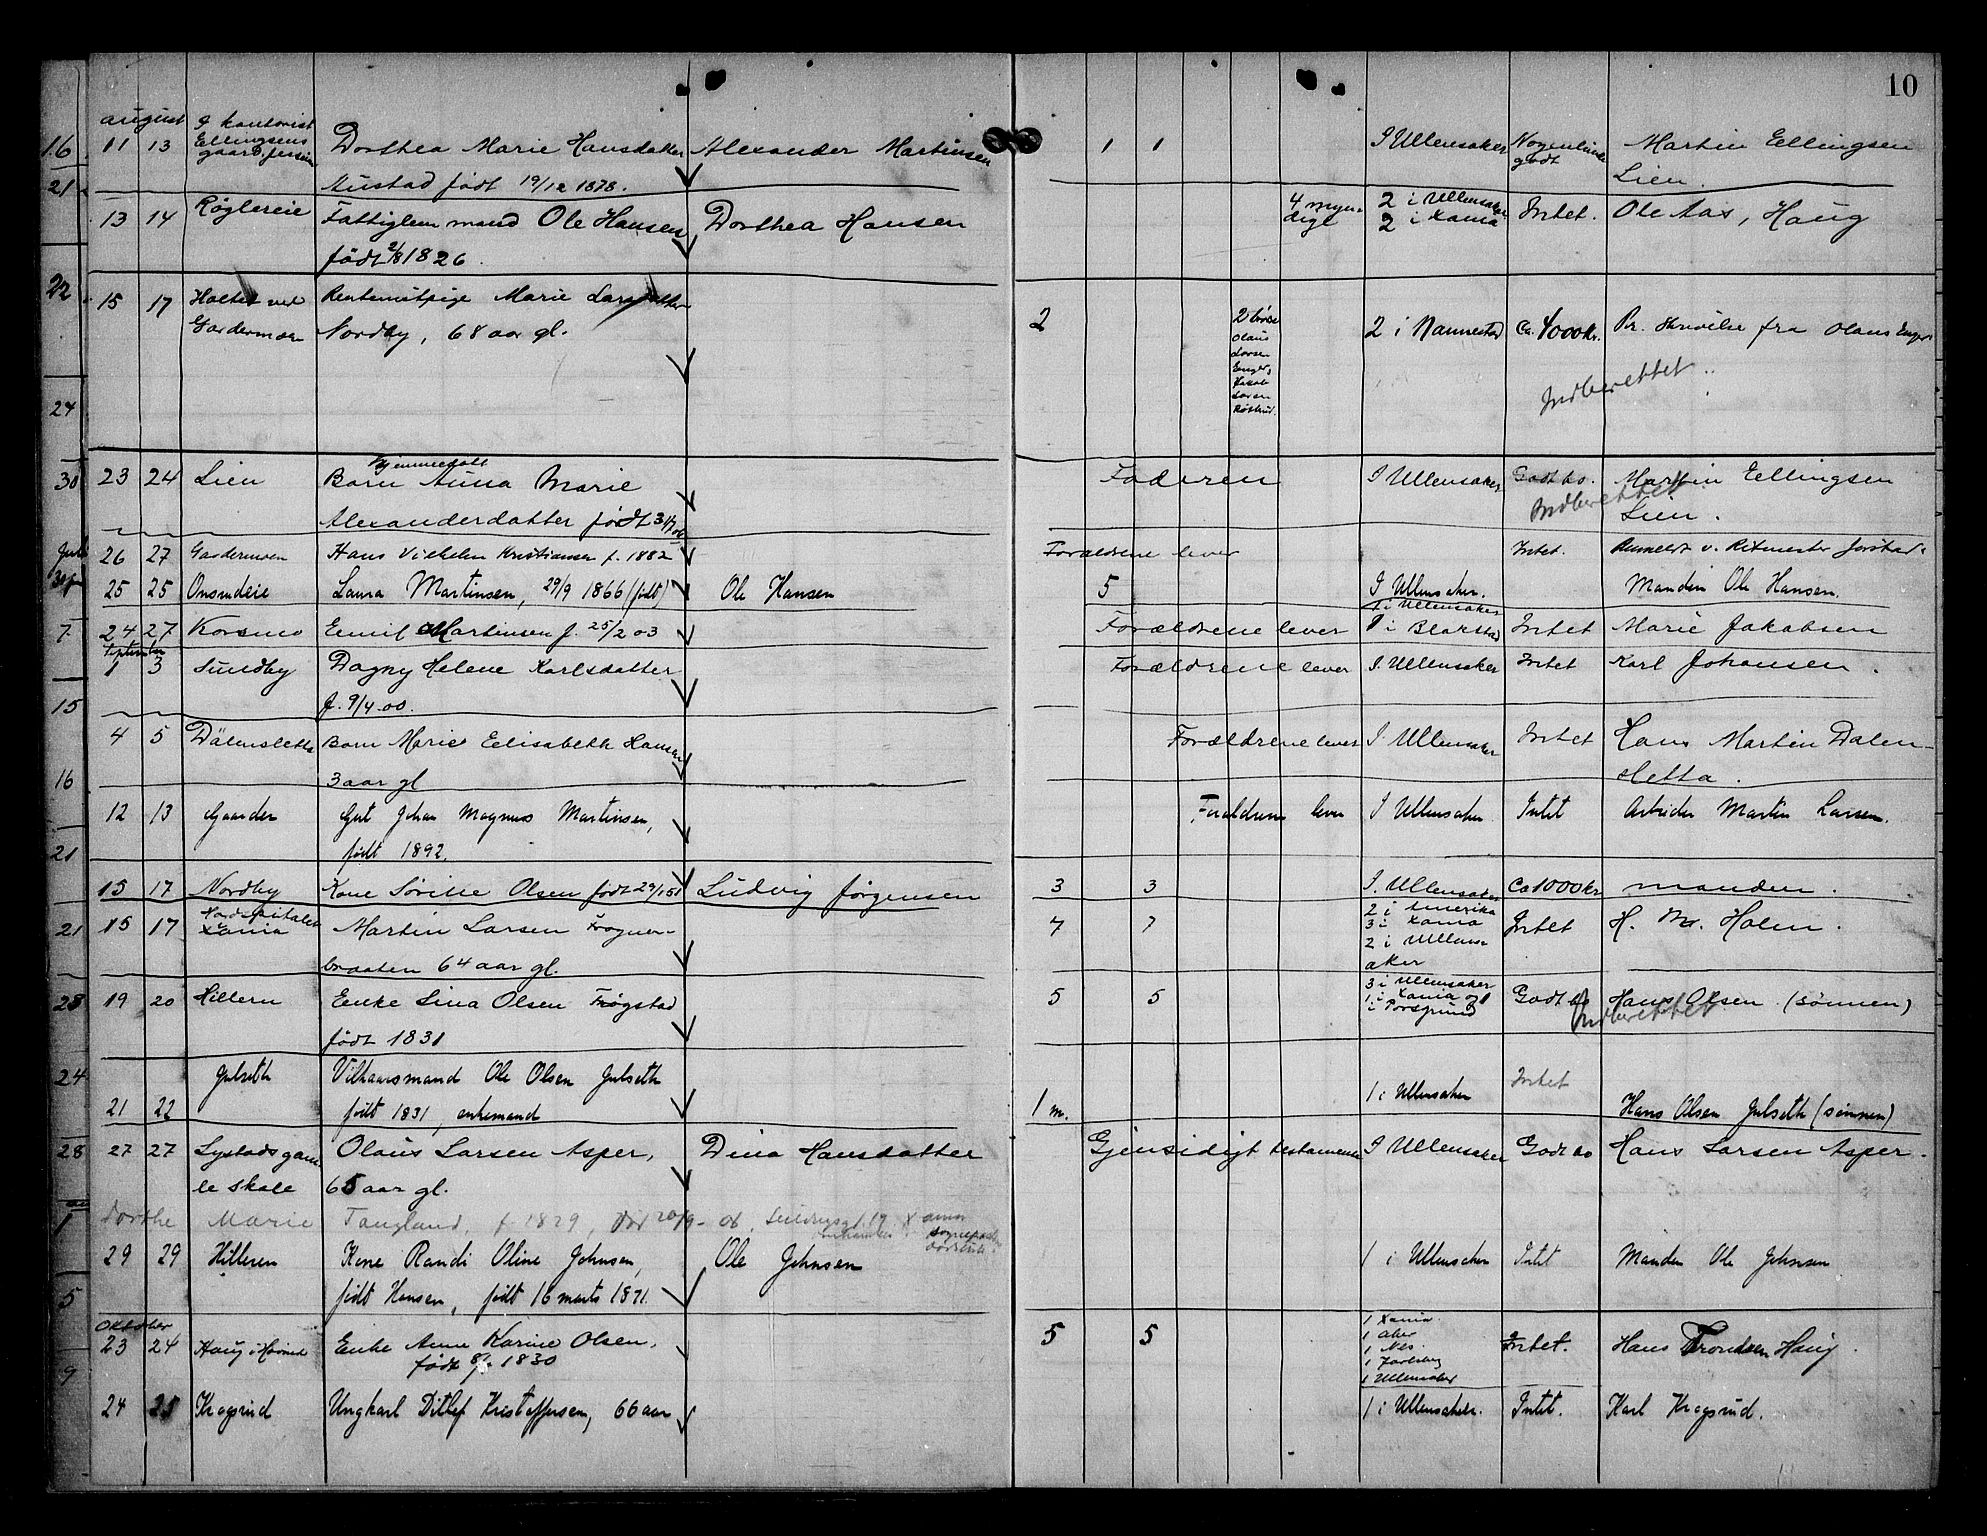 10
august
11 13 Ellingsens Dorthea Marie Hansdatter Alexander Martinsen 1 1 I Ullensaker Martin Ellingsen
Austad født 19/12 1878. godt Lien.
16
21
13 14 Røglereie Fattiglem mand Ole Hansen Dorthea Hansen 4 myn- 2 i Ullensaker Intet. Ole Aas, Haug
dige 2 i Xania
født 2/8 1826.
22
15 17 Holter ved Marie Larsdatter 2 2 i Nannestad Ca. 4000 kr. fra Olaus Enger
Gardermoen Nordby, 68 aar gl.
Olaus
Larsen
Enger,
Indberettet
24
Hjemmedøbt
30 23 24 Lien Barn Anna Marie Faderen I Ullensaker Godt bo. Martin Ellingsen
Alexanderdatter født Indberettet Lien.
26 27 Gardermoen Hans Vilhelm Kristiansen f. 1882 Forældrene lever Intet. Anmeldt v. Ritmester
25 25 Onsrudeie Laura Martinsen, 29/9 1866 (født) Ole Hansen 5 I Ullensaker. Manden Ole Hansen.
1 i Ullensaker
7 24 27 Korsmo Emil Martinsen f. 25/2 03 Forældrene lever 1 i Blakstad Intet Marie Jakobsen
September
1 3 Sundby Dagny Helene Karlsdatter Forældrene lever I. Ullensaker Intet Karl Johansen.
f. 9/4 00.
15
4 5 Dalensletta Barn Marie Elisabeth Hansen Forældrene lever I. Ullensaker Intet Hans Martin Dalen-
3 aar gl sletta.
16
12 13 Gaarder Gut Johan Magnus Martinsen, Forældrene lever I Ullensaker Intet Arbeider Martin Larsen.
født 1892.
21
15 17 Nordby Kone Sørine Olsen født Ludvig Jørgensen 3 3 I. Ullensaker Ca 1000 kr manden.
2 i Amerika
21 15 17 Xania Martin Larsen Frogner- 7 7 3 i Xania Intet H. M. Holm.
2 i Ullens-
braaten 64 aar gl. aker
3 i Ullensaker
28 19 20 Hilleren Enke Lina Olsen Frogstad 5 5 1 i Xania og 1 Godt bo Hans Olsen (sønnen)
i Porsgrund Indberettet
født 1831
24 Julseth Vilkaarsmand Ole Olsen Julseth 1 i Ullensaker Intet
21 22 født 1831, enkemand 1 m. Hans Olsen Julseth (sønnen)
28 27 27 Lystads gam- Olaus Larsen Asper, Dina Hansdatter Gjensidigt testamente I Ullensaker Godt bo Hans Larsen Asper.
le skole 65 aar gl.
1 Dorthe Marie Tangland, f. 1829, død 20/9-06,
29 29 Hilleren Kone Randi Oline Johnsen, Ole Johnsen 1 i Ullensaker Intet Manden Ole Johnsen
5 født Hansen, født 16 marts 1871.
Oktober
23 24 Haug i Enke Anne Karine Olsen, 5 5 Intet. Hans Trondsen Haug.
født 1830
1 Xania
1 Aker
1 Nes
1 Ullensaker
9
24 25 Kragsrud Ungkarl Ditlef Kristoffersen, 66 aar 1 i Ullensaker. Intet. Karl Kragsrud.